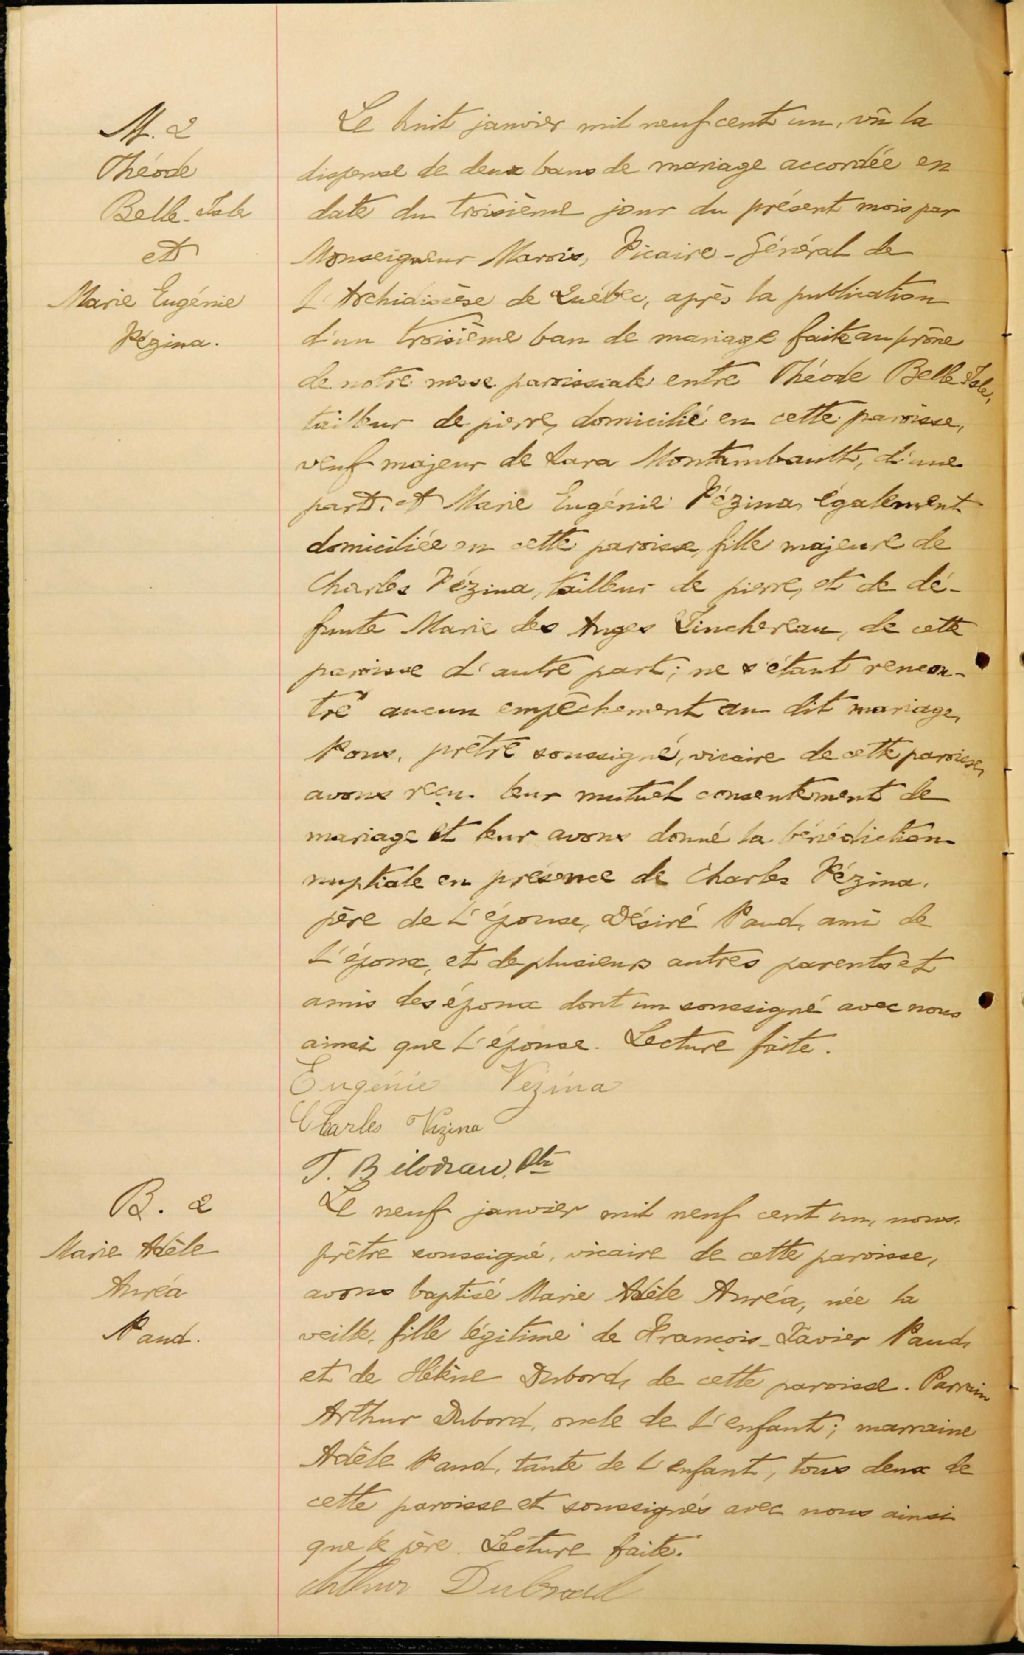 M. 2
Théode
Belle-Isle
et
Marie Eugénie
Vézina.
Le huit janvier mil neuf cent un, vû la
dispense de deux bans de mariage accordée en
date du troisième jour du présent mois par
Monseigneur Marois, Vicaire-Général de
l'Archidiocèse de Québec, après la publication
d'un troisième ban de mariage faite au prône
de notre messe paroissiale entre Théode Belle-Isle,
tailleur de pierre, domicilié en cette paroisse,
veuf majeur de Lara Montambault, d'une
part, et Marie Eugénie Vézina, également
domiciliée en cette paroisse, fille majeure de
Charles Vézina, tailleur de pierre, et de dé-
funte Marie des Anges Tinchereau, de cette
paroisse d'autre part; ne s'étant rencon-
tré aucun empêchement au dit mariage,
Nous, prêtre soussigné, vicaire de cette paroisse,
avons reçu leur mutuel consentement de
mariage et leur avons donné la bénédiction
nuptiale en présence de Charles Vézina,
père de l'épouse, Désiré Naud, ami de
l'époux, et de plusieurs autres parents et
amis des époux dont un soussigné avec nous
ainsi que l'épouse. Lecture faite.
Eugénie Vézina
Charles Vézina
T. Bilodeau, Ptr
B. 2
Marie Adèle
Auréa
Naud.
Le neuf janvier mil neuf cent un, nous,
prêtre soussigné, vicaire de cette paroisse,
avons baptisé Marie Adèle Auréa, née la
veille, fille légitime de François-Xavier Naud,
et de Hélène Dubord, de cette paroisse. Parrain
Arthur Dubord, oncle de l'enfant; marraine
Adèle Naud, tante de l'enfant, tous deux de
cette paroisse et soussignés avec nous ainsi
que le père. Lecture faite.
Arthur Dubord